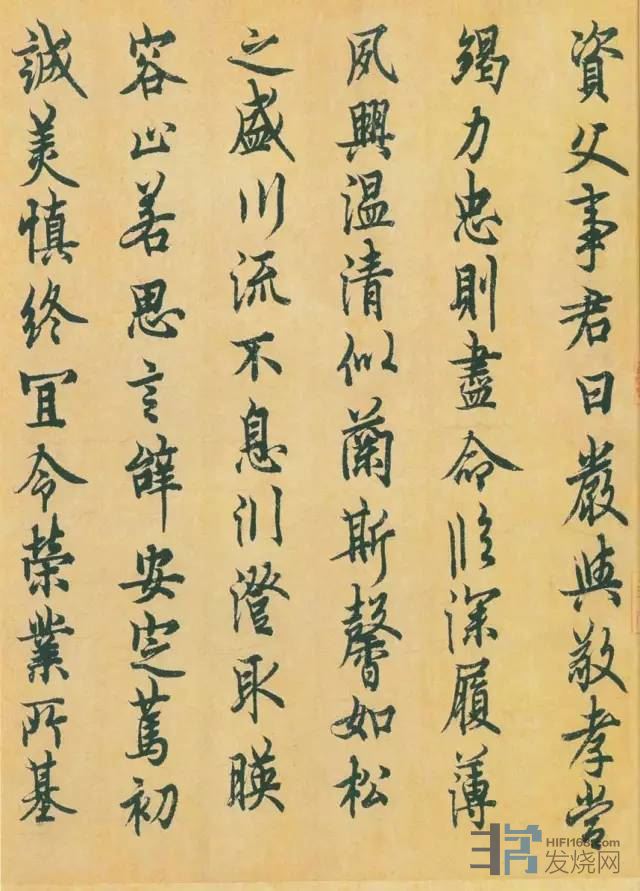 資父事君曰嚴與敬孝當
竭力忠則盡命臨深履薄
夙興温清似蘭斯馨如松
之盛川流不息渊澄取暎
容止若思言辭安定篤初
誠美慎終宜令榮業所基
HIFI168.com
发烧网